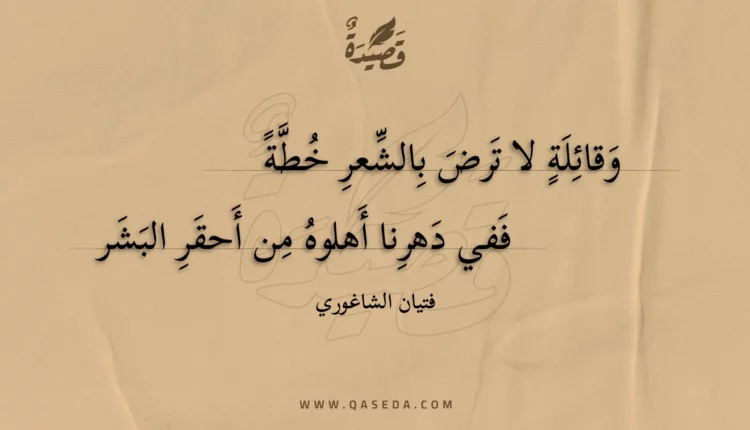 قَصِيدَةٌ
وَقائِلَةٍ لا تَرضَ بِالشِّعرِ خُطَّةً
فَفي دَهرِنا أَهلوهُ مِن أَحقَرِ البَشَر
فتيان الشاغوري
WWW.QASEDA.COM